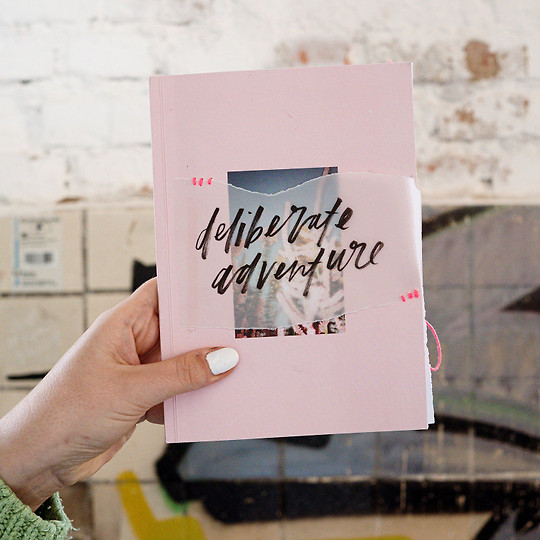 deliberate
adventure